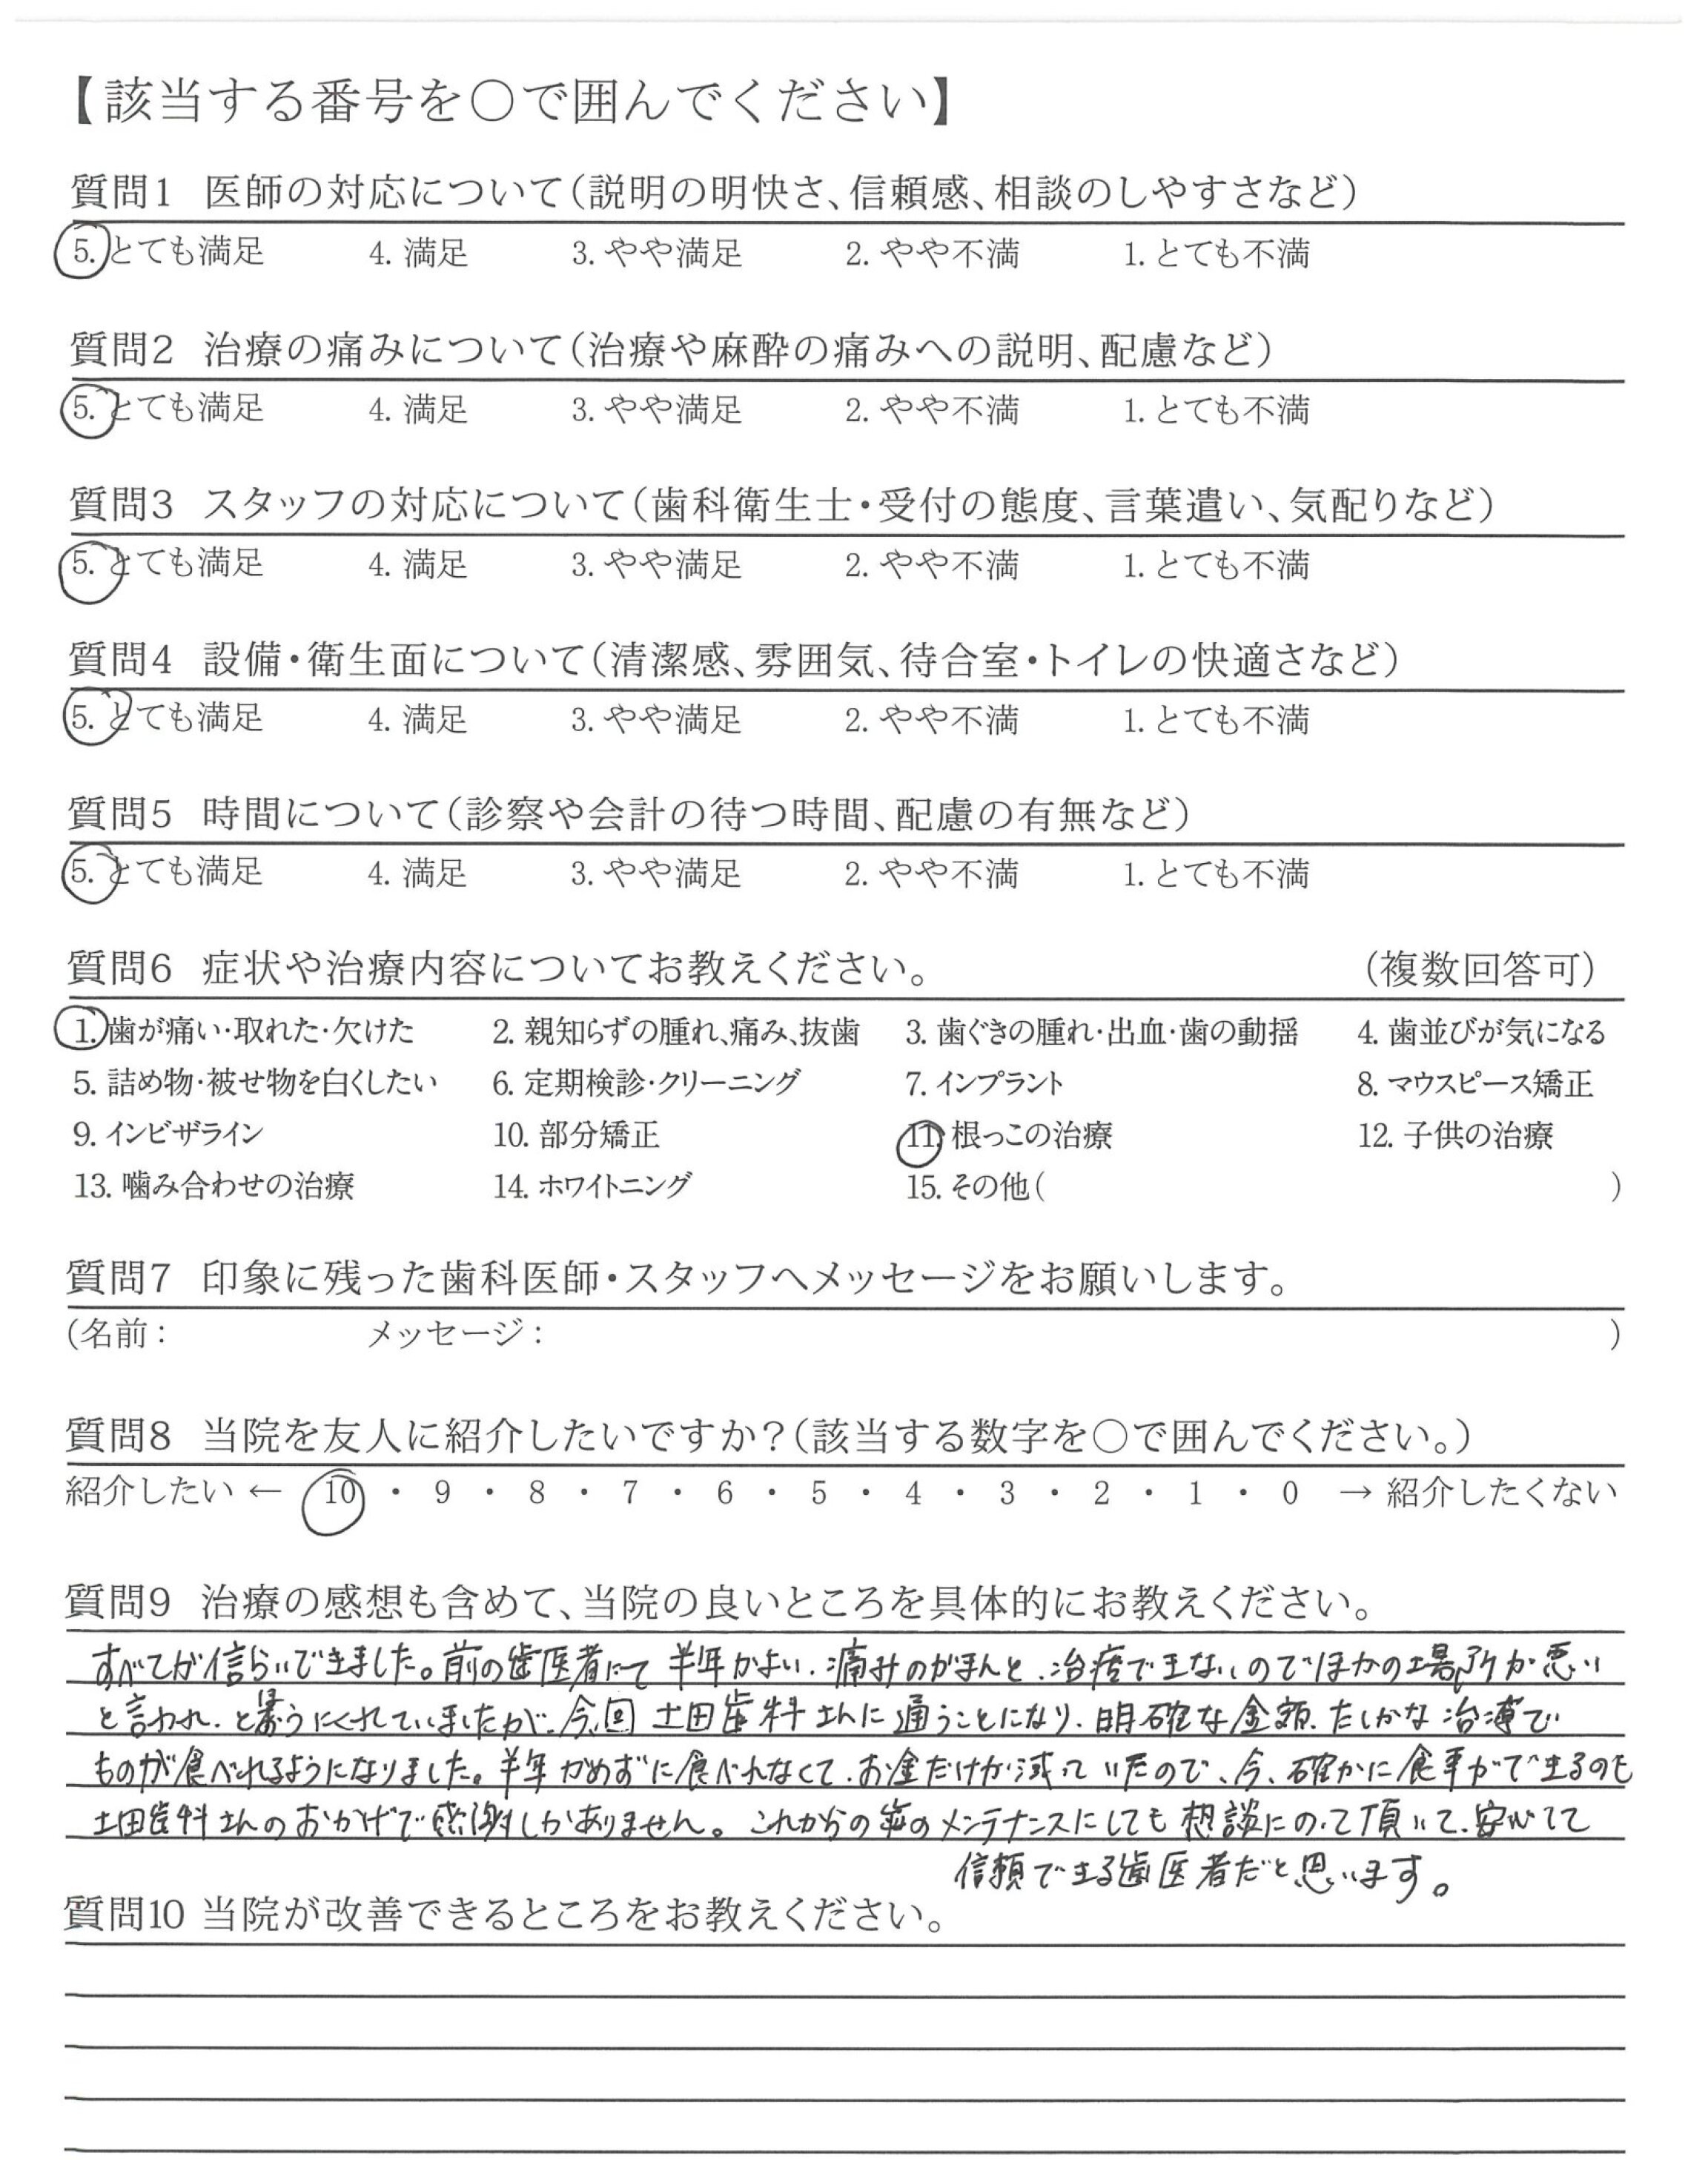 【該当する番号を〇で囲んでください】
質問1 医師の対応について(説明の明快さ、信頼感、相談のしやすさなど)
5. とても満足 4. 満足 3. やや満足 2. やや不満 1. とても不満
質問2 治療の痛みについて(治療や麻酔の痛みへの説明、配慮など)
5. とても満足 4. 満足 3. やや満足 2. やや不満 1. とても不満
質問3 スタッフの対応について(歯科衛生士・受付の態度、言葉遣い、気配りなど)
5. とても満足 4. 満足 3. やや満足 2. やや不満 1. とても不満
質問4 設備・衛生面について(清潔感、雰囲気、待合室・トイレの快適さなど)
5. とても満足 4. 満足 3. やや満足 2. やや不満 1. とても不満
質問5 時間について(診察や会計の待つ時間、配慮の有無など)
5. とても満足 4. 満足 3. やや満足 2. やや不満 1. とても不満
質問6 症状や治療内容についてお教えください。 (複数回答可)
1. 歯が痛い・取れた・欠けた 2. 親知らずの腫れ、痛み、抜歯 3. 歯ぐきの腫れ・出血・歯の動揺 4. 歯並びが気になる
5. 詰め物・被せ物を白くしたい 6. 定期検診・クリーニング 7. インプラント 8. マウスピース矯正
9. インビザライン 10. 部分矯正 11. 根っこの治療 12. 子供の治療
13. 噛み合わせの治療 14. ホワイトニング 15. その他( )
質問7 印象に残った歯科医師・スタッフへメッセージをお願いします。
(名前: メッセージ: )
質問8 当院を友人に紹介したいですか?(該当する数字を〇で囲んでください。)
紹介したい ← 10 ・ 9 ・ 8 ・ 7 ・ 6 ・ 5 ・ 4 ・ 3 ・ 2 ・ 1 ・ 0 → 紹介したくない
質問9 治療の感想も含めて、当院の良いところを具体的にお教えください。
すべてが信らいできました。前の歯医者にて半年かよい、痛みのがまんと、治療できないのでほかの場所が悪い
と言われ、と うにくれていましたが、今回 土田歯科さんに通うことになり、明確な金額、たしかな治療で
ものが食べれるようになりました。半年かめずに食べれなくて、お金だけが減っていたので、今、確かに食事ができるのも
土田歯科さんのおかげで感謝しかありません。これからの歯のメンテナンスにしても想談にのって頂いて、安心して
信頼できる歯医者だと思います。
質問10 当院が改善できるところをお教えください。